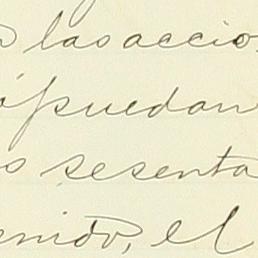 las accio
puedan
sesenta
enido, el